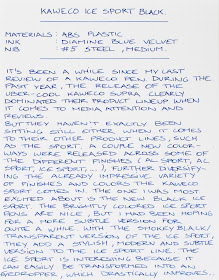 KAWECO ICE SPORT BLACK
MATERIALS: ABS PLASTIC
INK : DIAMINE BLUE VELVET
NIB : #5 STEEL, MEDIUM.
IT'S BEEN A WHILE SINCE MY LAST
REVIEW OF A KAWECO PEN. DURING THE
PAST YEAR, THE RELEASE OF THE
UBER-COOL KAWECO SUPRA CLEARLY
DOMINATED THEIR PRODUCT LINEUP WHEN
IT COMES TO MEDIA ATTENTION AND
REVIEWS.
BUT THEY HAVEN'T EXACTLY BEEN
SITTING STILL EITHER WHEN IT COMES
TO THEIR OTHER PRODUCT LINES, SUCH
AS THE SPORT. A COUPLE NEW COLOR-
WAYS WERE RELEASED ACROSS SOME OF
THE DIFFERENT FINISHES (AL SPORT, AC
SPORT, ICE SPORT, ...), FURTHER DIVERSIFY-
ING THE ALREADY IMPRESSIVE VARIETY
OF FINISHES AND COLORS THE KAWECO
SPORT COMES IN. THE ONE I WAS MOST
EXCITED ABOUT IS THE NEW BLACK ICE
SPORT. THE BRIGHTLY COLORED ICE SPORT
PENS ARE NICE, BUT I HAD BEEN HOPING
FOR A MORE SUBTLE VERSION FOR
QUITE A WHILE. WITH THE SMOKEY BLACK,
TRANSPARENT VERSION OF THE ICE SPORT,
THEY ADD A STYLISH, MODERN AND SUBTLE
VERSION TO THE ICE SPORT LINE. THE
ICE SPORT IS INTERESTING BECAUSE IT
CAN EASILY BE TRANSFORMED INTO AN
EYEDROPPER, WHICH DRASTICALLY IMPROVES